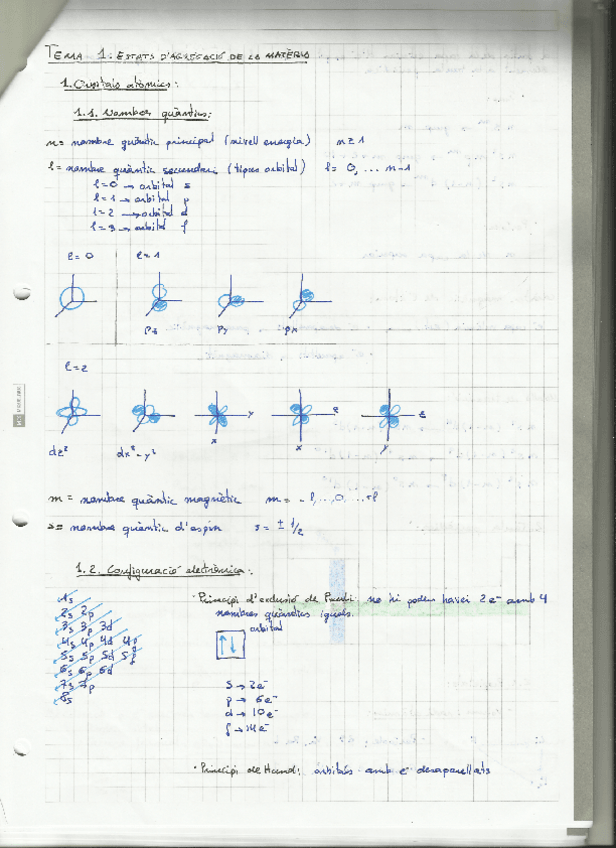 TEMA 1. ESTATS D'AGREGACIÓ DE LA MATÈRIA
1. Orbitals atòmics:
1.1. Nombres quàntics:
n = nombre quàntic principal (nivell energia) n ≥ 1
l = nombre quàntic secundari (tipus orbital) l = 0, ... n-1
l = 0 → orbital s
l = 1 → orbital p
l = 2 → orbital d
l = 3 → orbital f
l = 0 l = 1
pz py px
l = 2
y z z
x x y
dz² dx²-y²
m = nombre quàntic magnètic m = -l, ..., 0, ... +l
s = nombre quàntic d'espín s = ± 1/2
1.2. Configuració electrònica:
1s
2s 2p
3s 3p 3d
4s 4p 4d 4f
5s 5p 5d 5f
6s 6p 6d
7s 7p
8s
· Principi d'exclusió de Pauli: no hi poden haver 2 e⁻ amb 4
nombres quàntics iguals.
orbital
↑↓
s → 2e⁻
p → 6e⁻
d → 10e⁻
f → 14e⁻
· Principi de Hund: orbitals amb e⁻ desaparellats